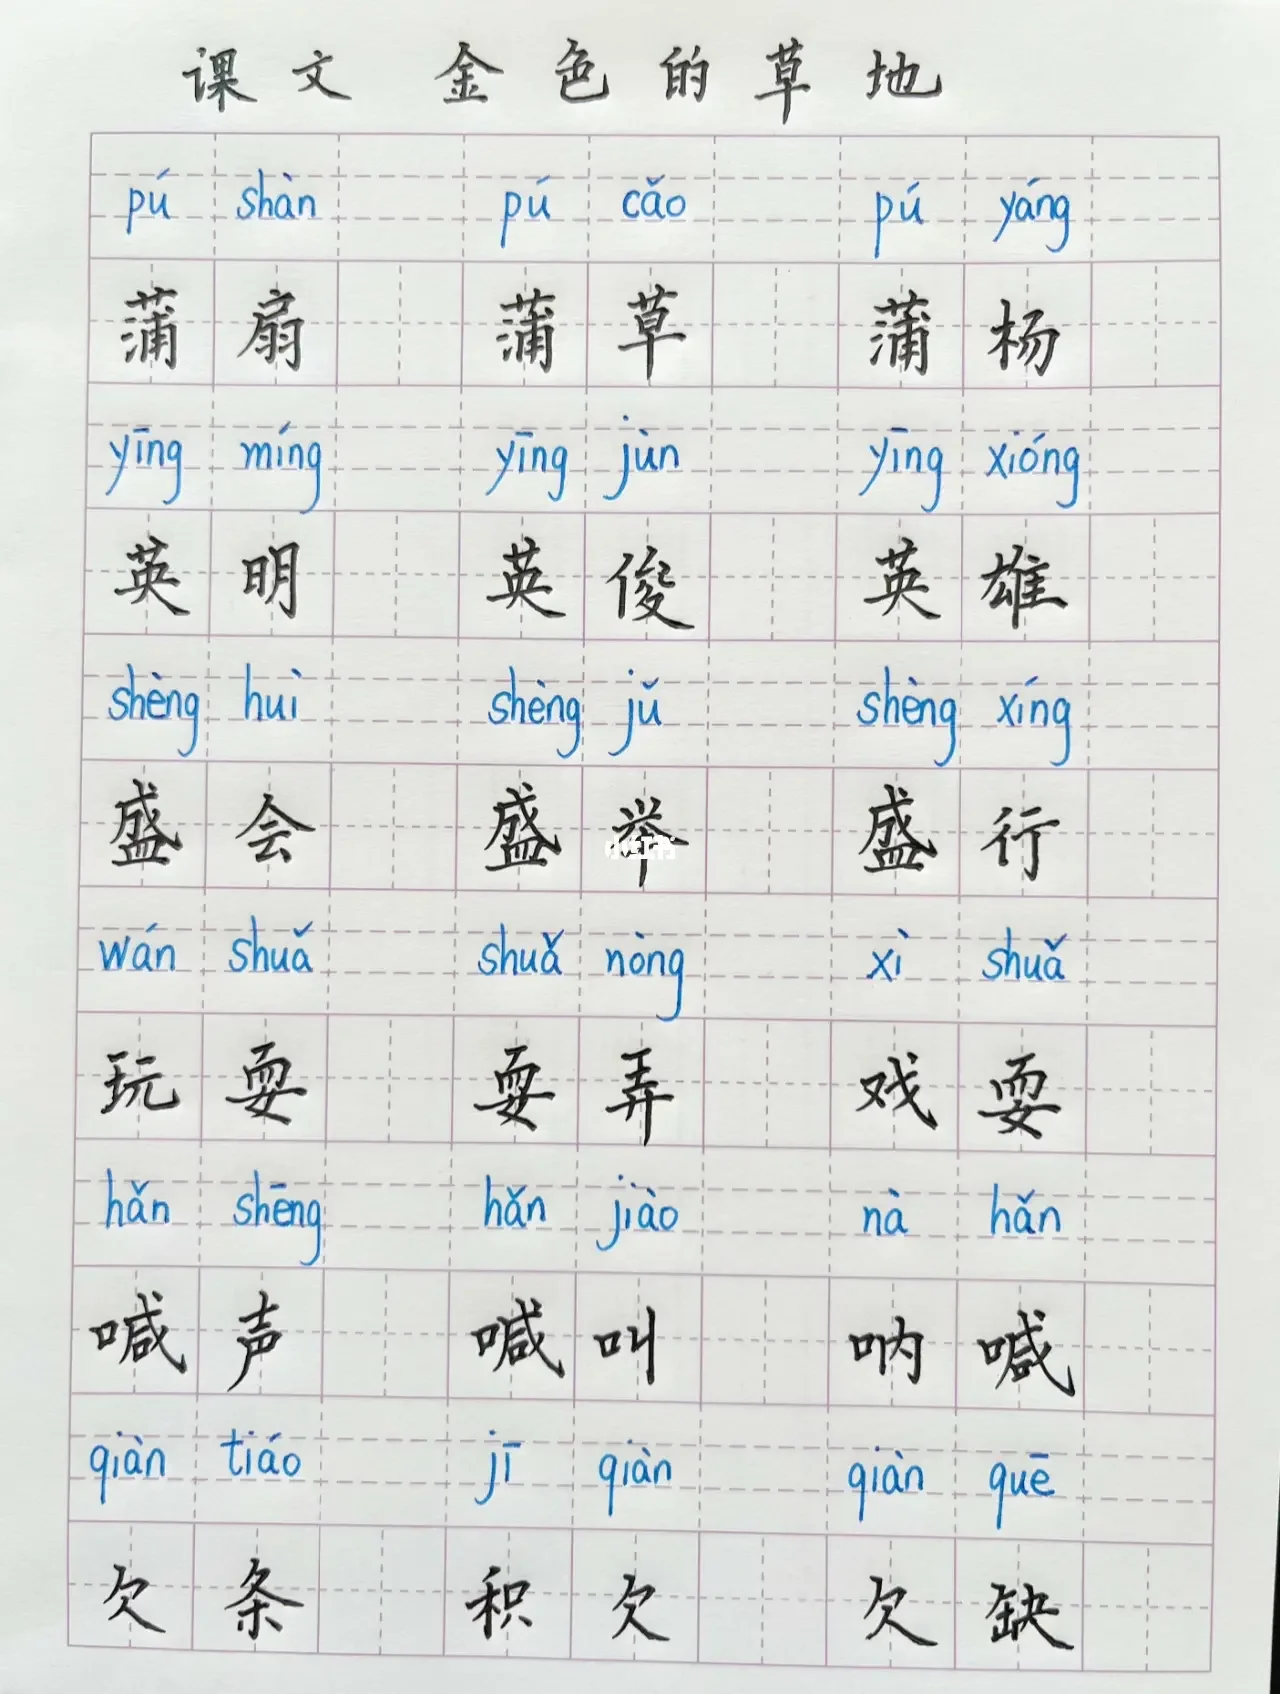 课文 金色的草地
pú shàn pú cǎo pú yáng
蒲扇 蒲草 蒲杨
yīng míng yīng jùn yīng xióng
英明 英俊 英雄
shèng huì shèng jǔ shèng xíng
盛会 盛举 盛行
wán shuǎ shuǎ nòng xì shuǎ
玩耍 耍弄 戏耍
hǎn shēng hǎn jiào nà hǎn
喊声 喊叫 呐喊
qiàn tiáo jī qiàn qiàn quē
欠条 积欠 欠缺
小红书